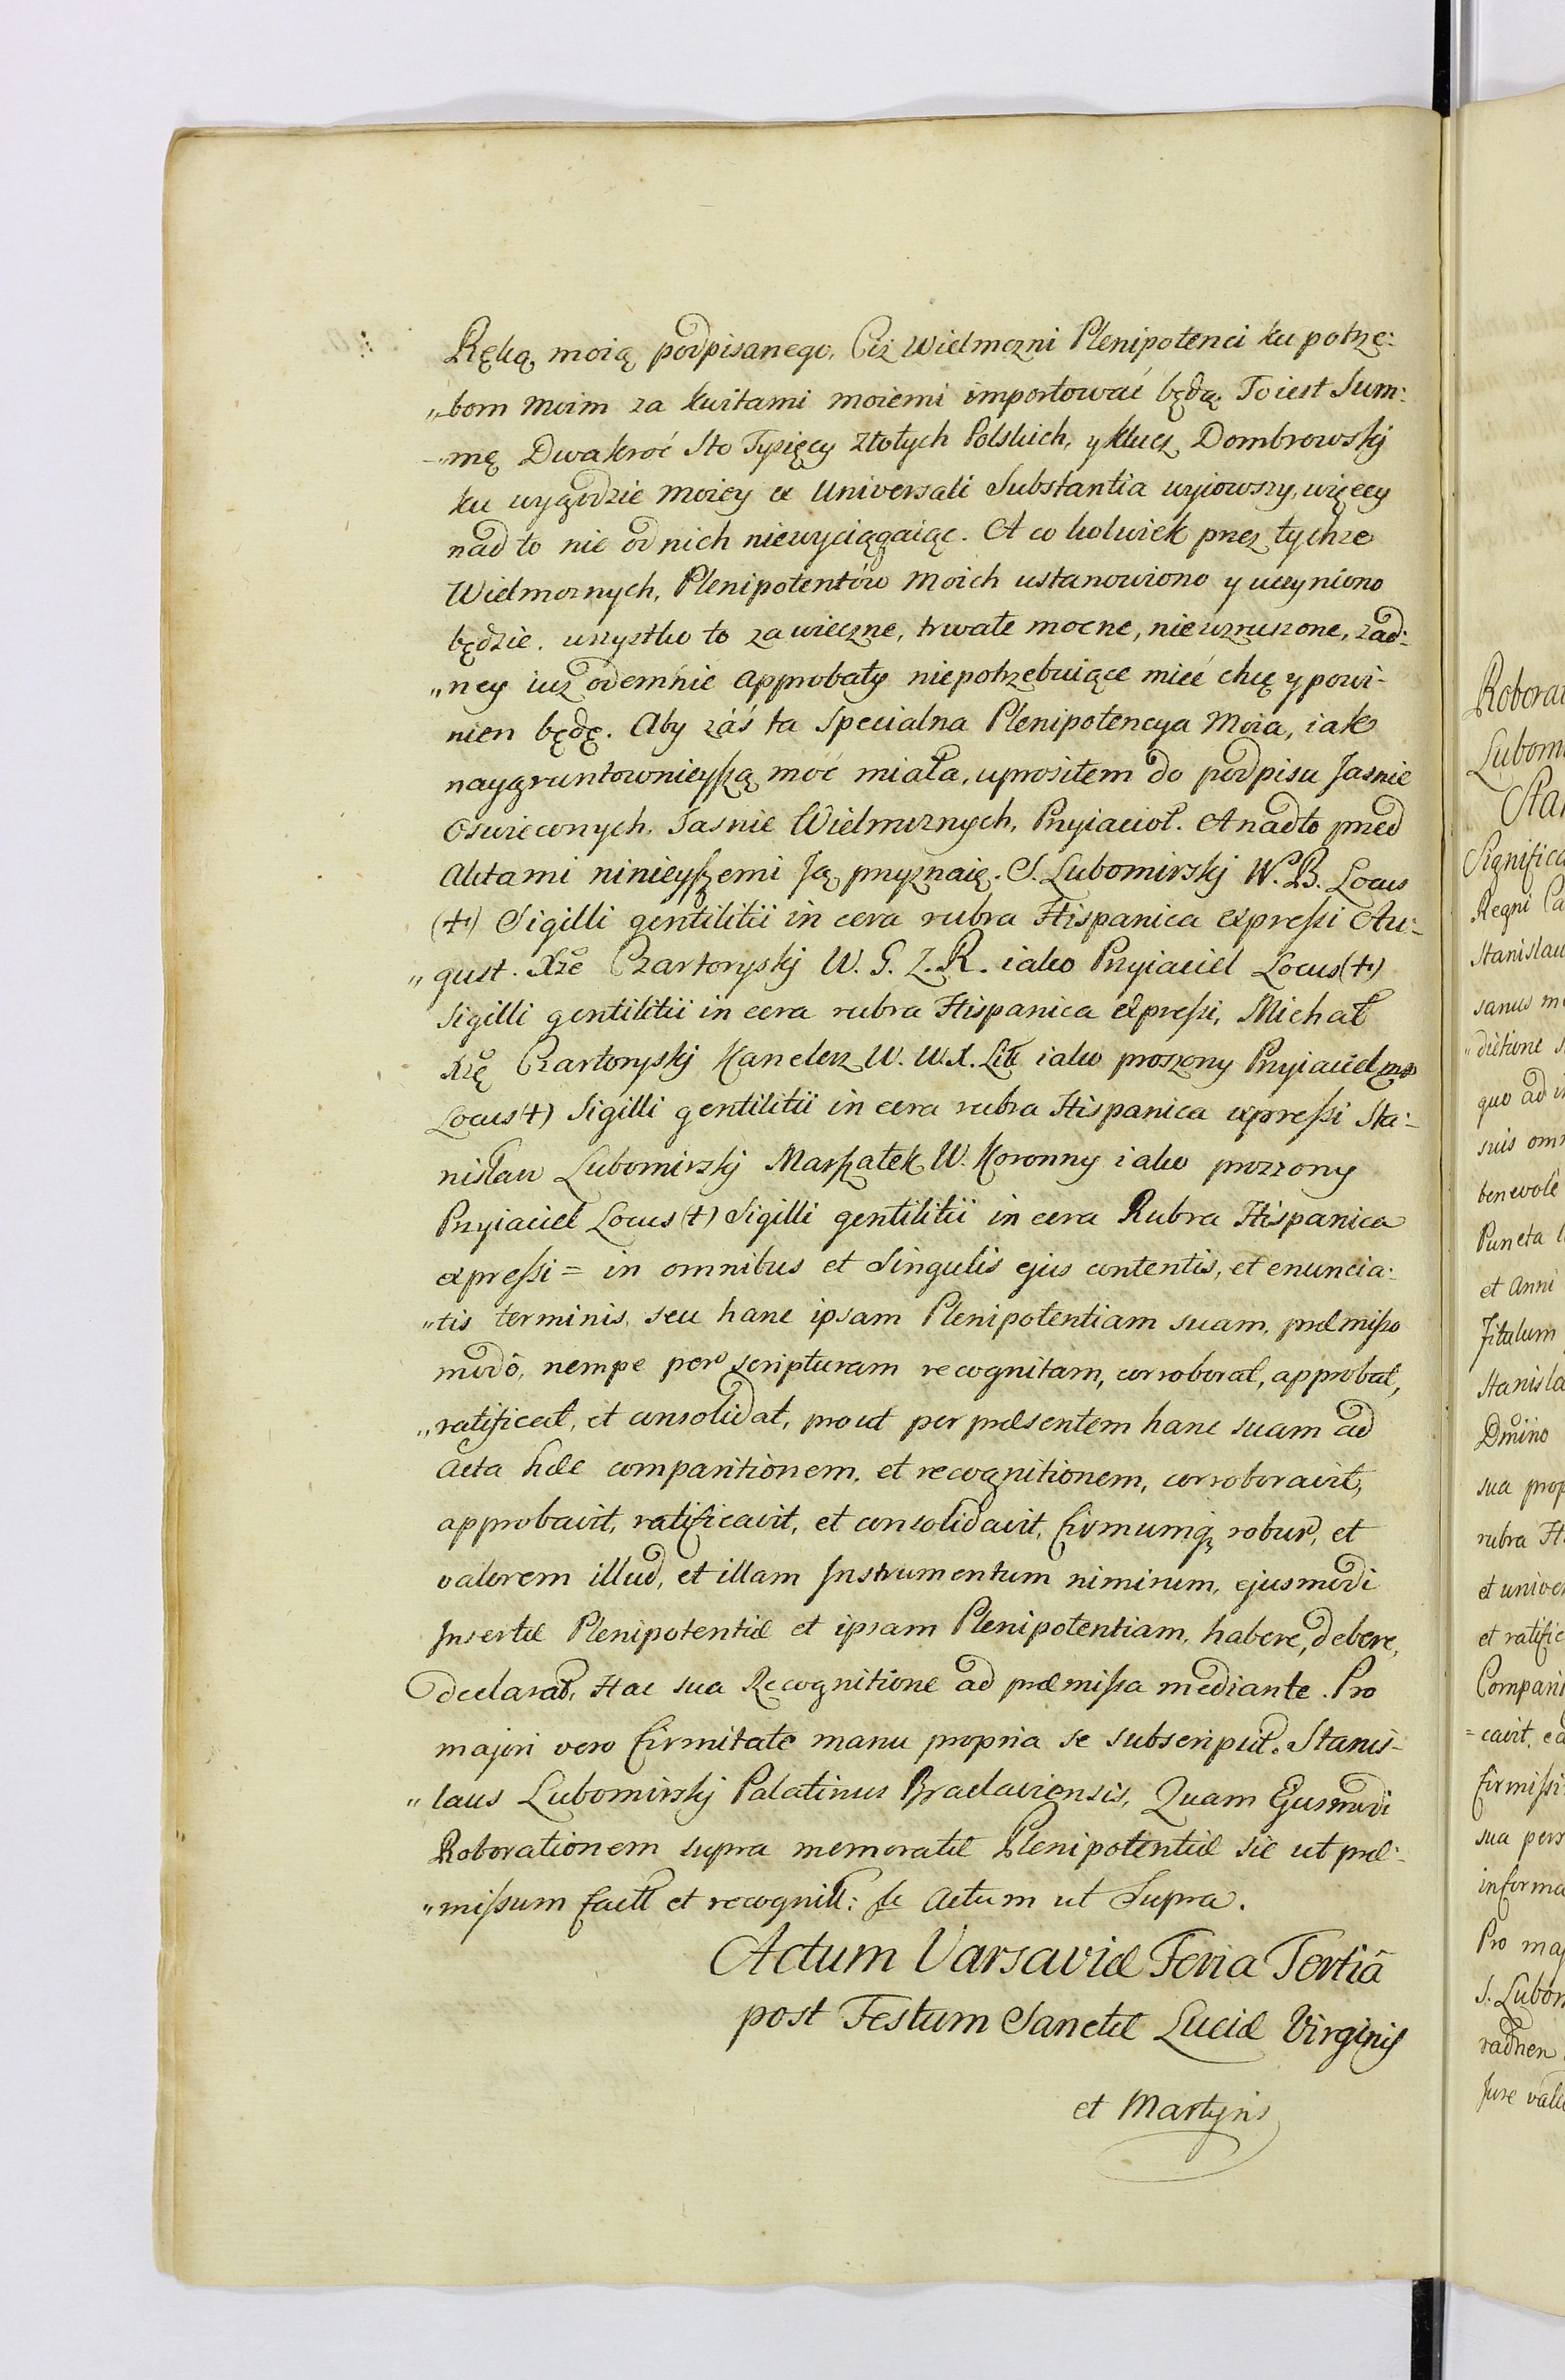 Ręką moią podpisanego, Ciż Wielmożni Plenipotenci ku potrze:
„bom moim za kwitami moiemi importować będą To iest Sum:
„mę Dwakroć Sto Tysięcy Złotych Polskich, y klucz Dombrowskj
ku wygodzie moiey ex Universali Substantia wyiowszy, więcey
nad to nic od nich niewyciągaiąc. A co kolwiek przez tychże
Wielmożnych, Plenipotentów moich ustanowiono y uczyniono
będzie. wszystko to za wieczne, trwałe mocne, niewzruszone, żad:
„ney iuż odemnie approbaty niepotrzebuiące mieć chcę y powi-
nien będę. Aby záś ta Specialna Plenipotencya Moia, iak
naygruntownieyszą móc miała, uprosiłem do podpisu Jasnie
Oswieconych. Jasnie Wielmożnych, Przyiacioł. A nadto przed
Aktami ninieyszemi Ją przyznaię. S. Lubomirskj W. B. Locus
(+) Sigilli gentilitii in cera rubra Hispanica expressi Au:
„gust. Xże Czartoryskj W. G. Z. R. iako Przyiaciel Locus (+)
Sigilli gentilitii in cera rubra Hispanica expressi, Michał
Xżę Czartoryskj Kanclerz W. W. X. Litt iako proszony Przyiaciel mp
Locus (+) Sigilli gentilitii in cera rubra Hispanica expressi Sta:
nisław Lubomirskj Marszałek W. Koronny iako proszony
Przyiaciel Locus (+) Sigilli gentilitii in cera Rubra Hispanica
expressi = in omnibus et Singulis ejus contentis, et enuncia:
„tis terminis, seu hanc ipsam Plenipotentiam suam, præmisso
modô, nempe per scripturam recognitam, corroborat, approbat,
„ratificat, et consolidat, prout per præsentem hanc suam ad
Acta hæc comparitionem, et recognitionem, corroboravit,
approbavit, ratificavit, et consolidavit, firmumq̨ robur, et
valorem illud, et illam Instrumentum nimirum, ejusmodi
Insertæ Plenipotentiæ et ipsam Plenipotentiam, habere, debere,
declarat, Hac sua Recognitione ad præmissa mediante. Pro
majori vero firmitate manu propria se subscripsit. Stanis-
„laus Lubomirskj Palatinus Braclaviensis, Quam Ejusmodi
Roborationem supra memoratæ Plenipotentiæ sic ut præ-
„missum factt et recognitt: Actum ut Supra.
Actum Varsaviæ Feria Tertiâ
post Festum Sanctæ Luciæ Virginis
et Martyris
Lubom
Significa
Regni Ca
Stanislau
quo ad
benevole
Puncta
et Anni
Titulum
Stanisla
sua prop
et ratific
firmissi
informa